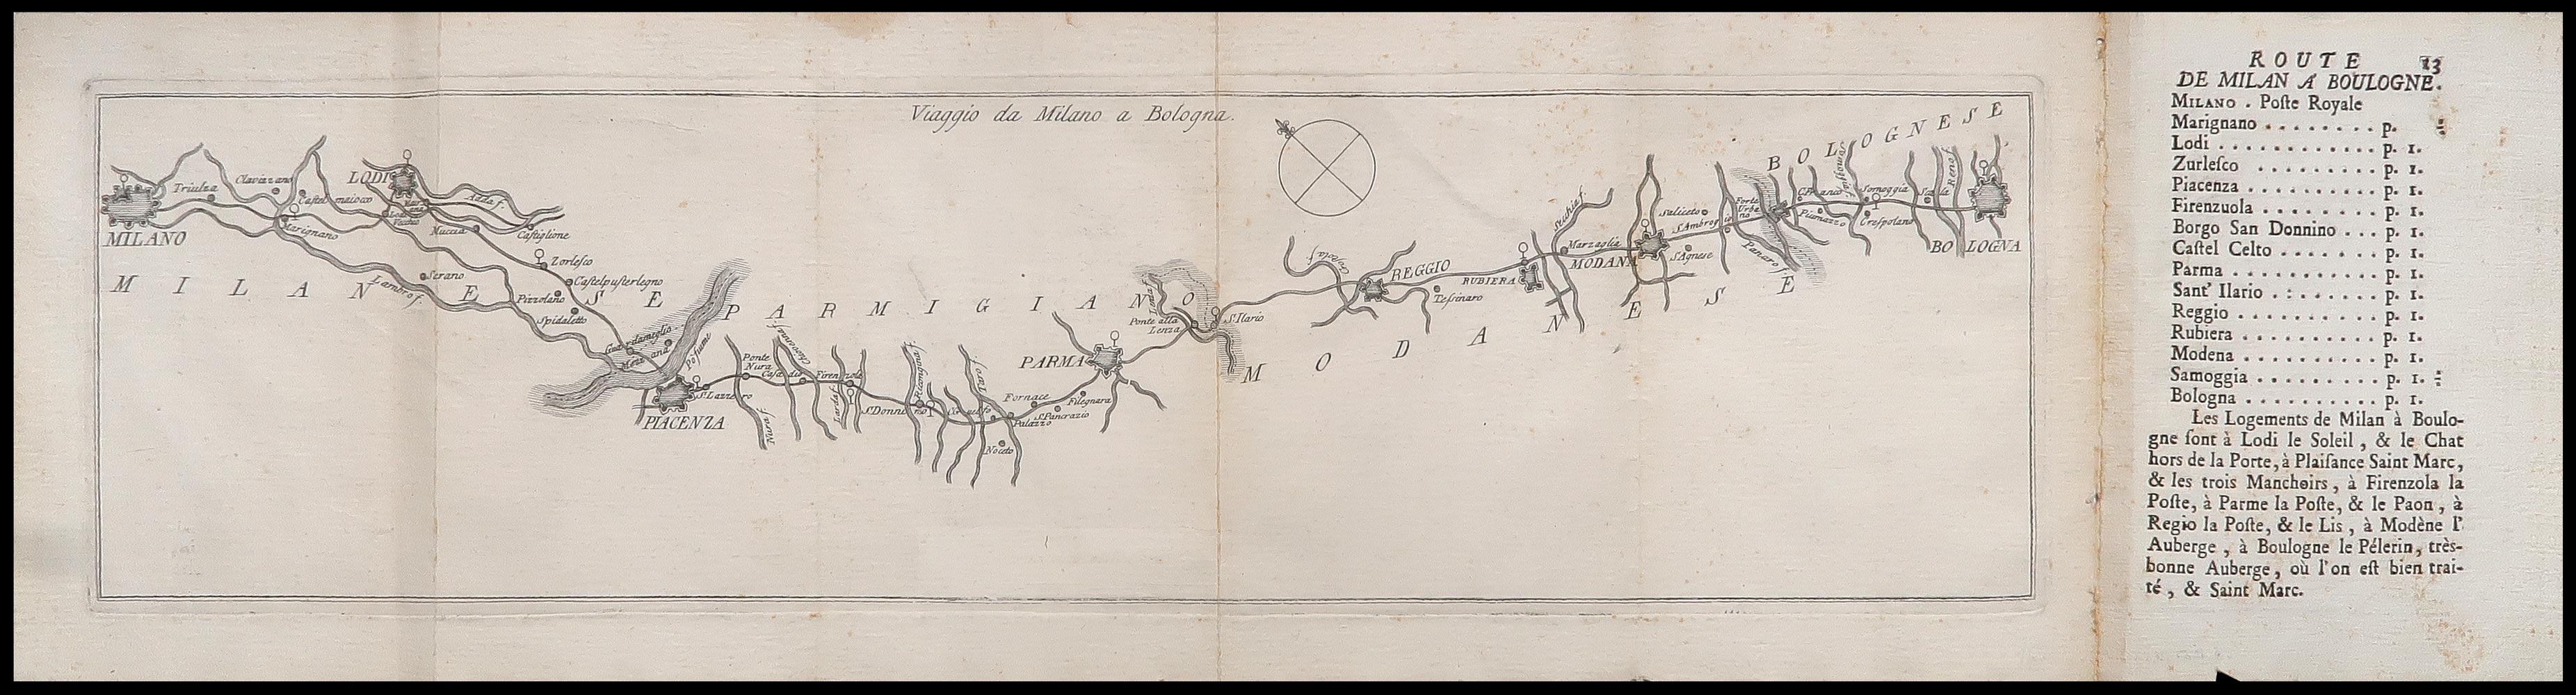 Viaggio da Milano a Bologna.
MILANO
Triulza
Claviazano
Castel maiocco
Marignano
LODI
Lodi Vecchio
Muccia
Adda f.
Castiglione
Zorlesco
Castelpusterlegno
Serano
Lambro f.
Pizzolano
Spidaletto
Guardameglio
Mezzana
Po fiume
PIACENZA
S. Lazzero
Ponte Nura
Nura f.
Firenzuola
Larda f.
S. Donnino
Taro f.
Noceto
Palazzo
Fornace
S. Pancrazio
Filegnara
PARMA
Ponte alla Lenza
S. Ilario
REGGIO
Tessinaro
RUBIERA
Secchia f.
Marzaglia
MODANA
Saliceto
S. Ambrosio
S. Agnese
Panaro f.
Forte Urbano
Piumazzo
Samoggia f.
Samoggia
Crespolano
Reno f.
BOLOGNA
MILANESE
PARMIGIANO
MODANESE
BOLOGNESE
ROUTE 13
DE MILAN A BOULOGNE.
MILANO . Poſte Royale
Marignano . . . . . . . . p.
Lodi . . . . . . . . . . . . p. 1.
Zurleſco . . . . . . . . . p. 1.
Piacenza . . . . . . . . . . p. 1.
Firenzuola . . . . . . . . p. 1.
Borgo San Donnino . . . p. 1.
Caſtel Celto . . . . . . . p. 1.
Parma . . . . . . . . . . . p. 1.
Sant' Ilario . : . . . . . p. 1.
Reggio . . . . . . . . . . p. 1.
Rubiera . . . . . . . . . . p. 1.
Modena . . . . . . . . . . p. 1.
Samoggia . . . . . . . . . p. 1.
Bologna . . . . . . . . . . p. 1.
Les Logements de Milan à Boulo-
gne ſont à Lodi le Soleil , & le Chat
hors de la Porte, à Plaiſance Saint Marc,
& les trois Manchoirs , à Firenzola la
Poſte, à Parme la Poſte, & le Paon , à
Regio la Poſte, & le Lis , à Modène l'
Auberge , à Boulogne le Pélerin, très-
bonne Auberge, où l'on eſt bien trai-
té , & Saint Marc.